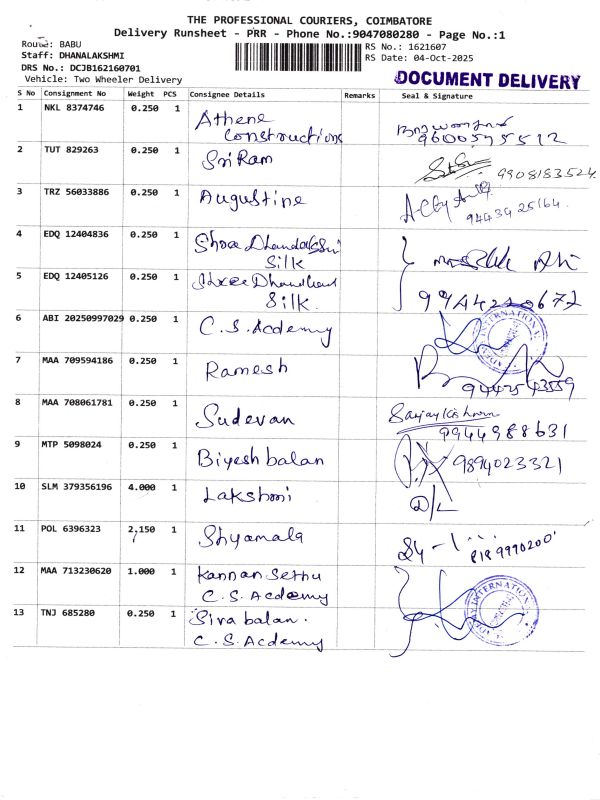 THE PROFESSIONAL COURIERS, COIMBATORE
Delivery Runsheet - PRR - Phone No.:9047080280 - Page No.:1
Route: BABU
RS No.: 1621607
Staff: DHANALAKSHMI
RS Date: 04-Oct-2025
DRS No.: DCJB162160701
Vehicle: Two Wheeler Delivery
DOCUMENT DELIVERY
S No Consignment No Weight PCS Consignee Details Remarks Seal & Signature
1 NKL 8374746 0.250 1 Athene
Constructions 9600575512
2 TUT 829263 0.250 1 SriRam 9908183524
3 TRZ 56033886 0.250 1 Augustine
9443925164
4 EDQ 12404836 0.250 1 Shree
Silk
5 EDQ 12405126 0.250 1 Shree
Silk.
6 ABI 20250997029 0.250 1 C.S. Acdemy INTERNATIONAL
7 MAA 709594186 0.250 1 Ramesh
8 MAA 708061781 0.250 1 Sudevan
9944988631
9 MTP 5098024 0.250 1 Biyesh balan 9894023321
10 SLM 379356196 4.000 1 Lakshmi D/L
11 POL 6396323 2.150 1 Shyamala
12 MAA 713230620 1.000 1 Kannan Sethu
C.S. Acdemy INTERNATIONAL
13 TNJ 685280 0.250 1 Siva balan.
C.S. Acdemy